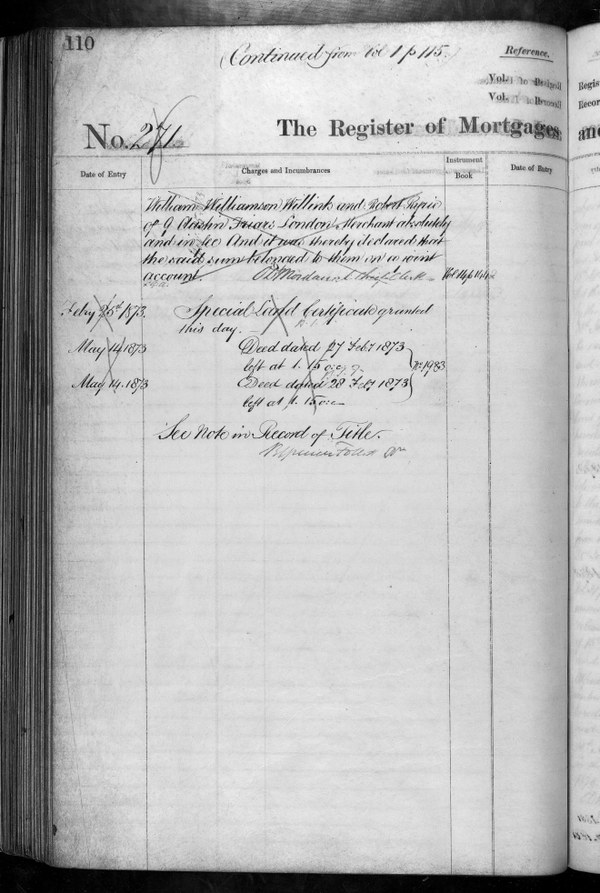 110
(Continued from Vol 1 p 115.)
Reference.
Vol.
Vol.
No. 271
The Register of Mortgages
Date of Entry
Charges and Incumbrances
Instrument
Book
Date of Entry
William Williamson Willink and Robert
of 9 Austin Friars London Merchant absolutely
and in fee And it was thereby declared that
the said sum belonged to them on a joint
account. Chief Clerk
Feby 25th 1873. Special Land Certificate granted
this day.
May 14. 1873 Deed dated 27 Feby 1873
left at 1. 15 No 1983
May 14. 1873 Deed dated 28 Feby 1873
left at 1. 15
See Note in Record of Title.